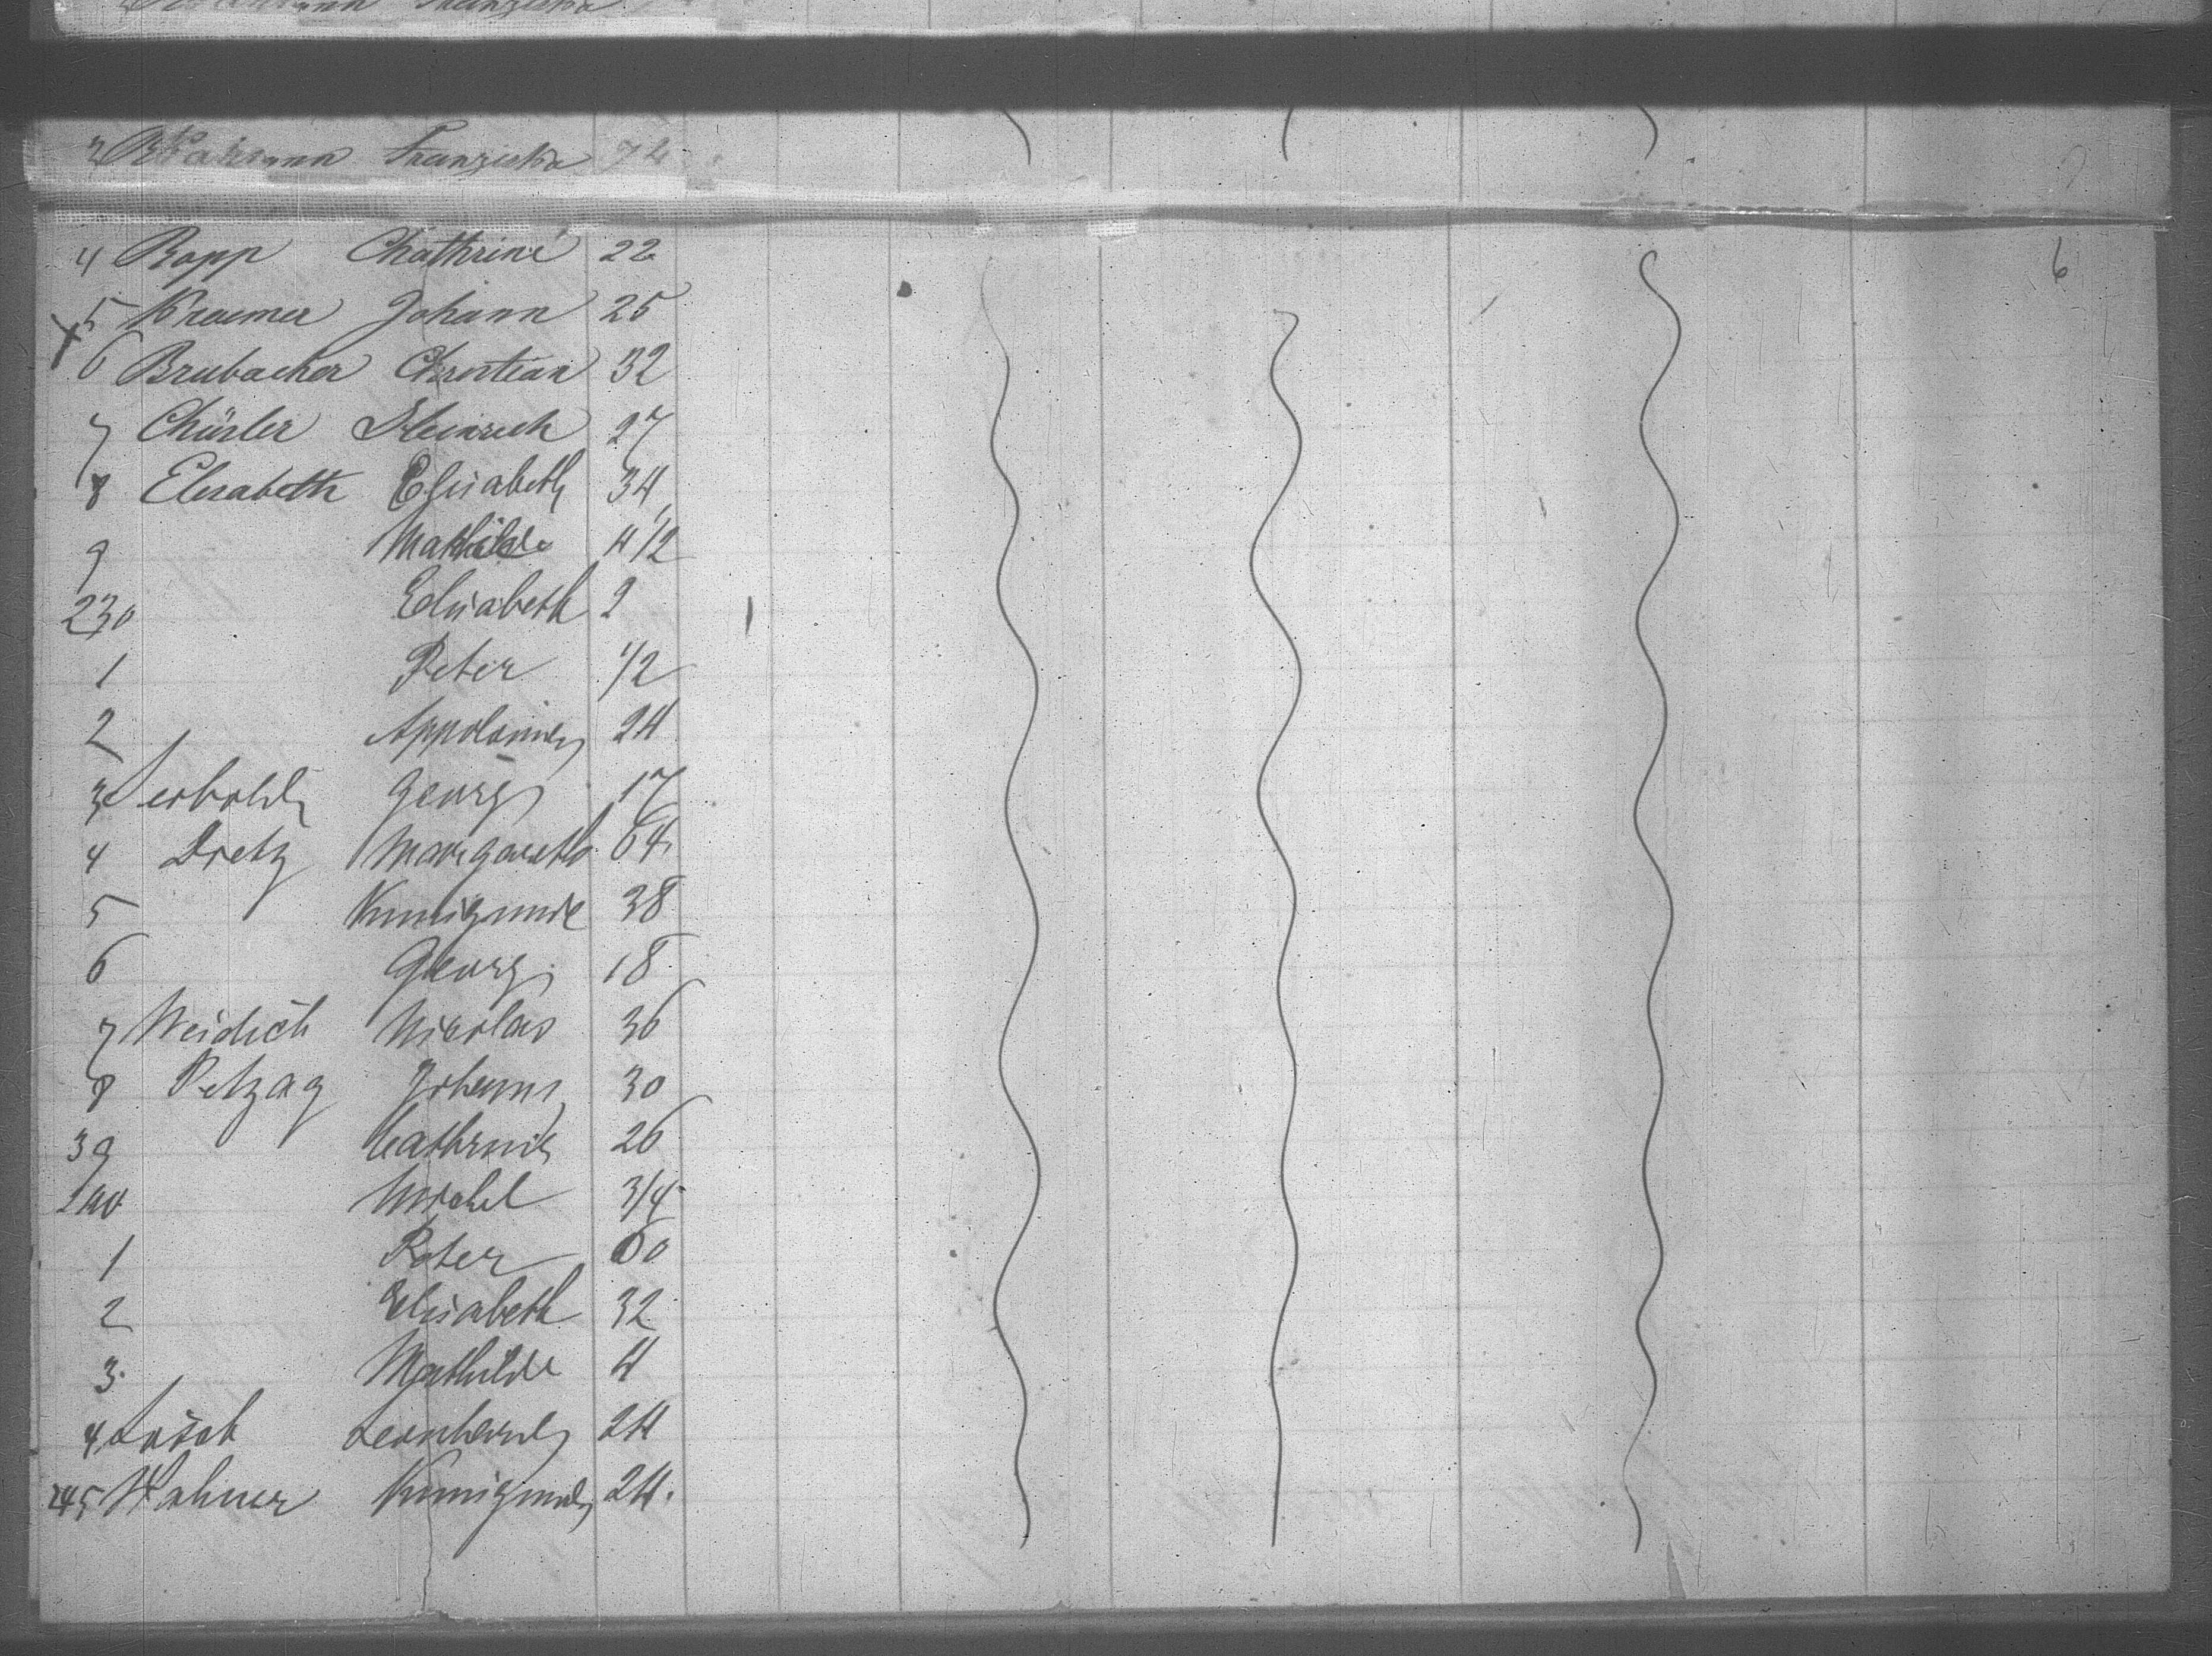 Franziska
3 Franziska 74
6
4 Rapp Chathrine 22
5 Kraemer Johann 25
x 6 Brubacher Christian 32
7 Chüsler Heinrich 27
8 Elesabeth Elisabeth 34
9 Mathilde 4 1/2
230 Elisabeth 2
1 Peter 1/2
2 Appolonie 24
3 Georg 17
4 Dietz Margareth 64
5 Kunigunde 38
6 Georg 18
7 Weidich Nicolas 36
8 Petzag Johann 30
39 Cathrine 26
240 Michel 3/4
1 Peter 60
2 Elisabeth 32
3 Mathilde 4
4 Lösch Leonhard 24
245 Wahner Kunigunde 24